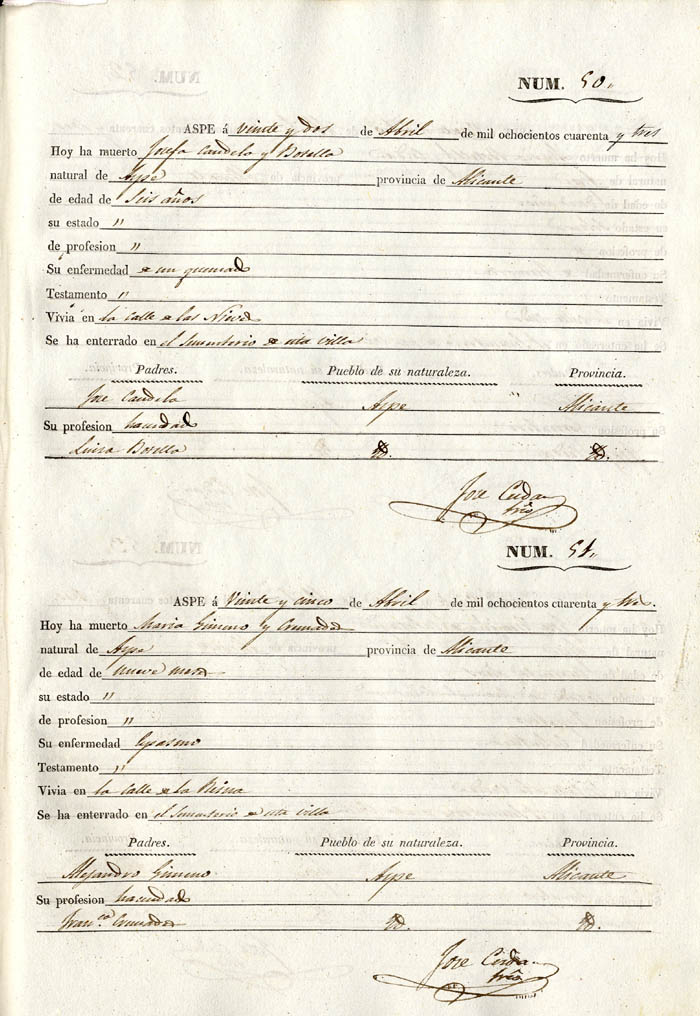 NUM. 50.
ASPE á veinte y dos de Abril de mil ochocientos cuarenta y tres
Hoy ha muerto Josefa Candela y Botella
natural de Aspe provincia de Alicante
de edad de Seis años
su estado "
de profesion "
Su enfermedad de un quemad
Testamento "
Vivia en la calle de las Nieves
Se ha enterrado en el Sementerio de esta villa
Padres. Pueblo de su naturaleza. Provincia.
Jose Candela Aspe Alicante
Su profesion hacendad
Luisa Botella Id. Id.
Jose Cerdan
NUM. 51.
ASPE á Veinte y cinco de Abril de mil ochocientos cuarenta y tres.
Hoy ha muerto Maria Gimeno y Cremades
natural de Aspe provincia de Alicante
de edad de nueve meses
su estado "
de profesion "
Su enfermedad Espasmo
Testamento "
Vivia en la Calle de la Reina
Se ha enterrado en el Sementerio de esta villa
Padres. Pueblo de su naturaleza. Provincia.
Alejandro Gimeno Aspe Alicante
Su profesion hacendad
Fran.ca Cremades Id. Id.
Jose Cerdan